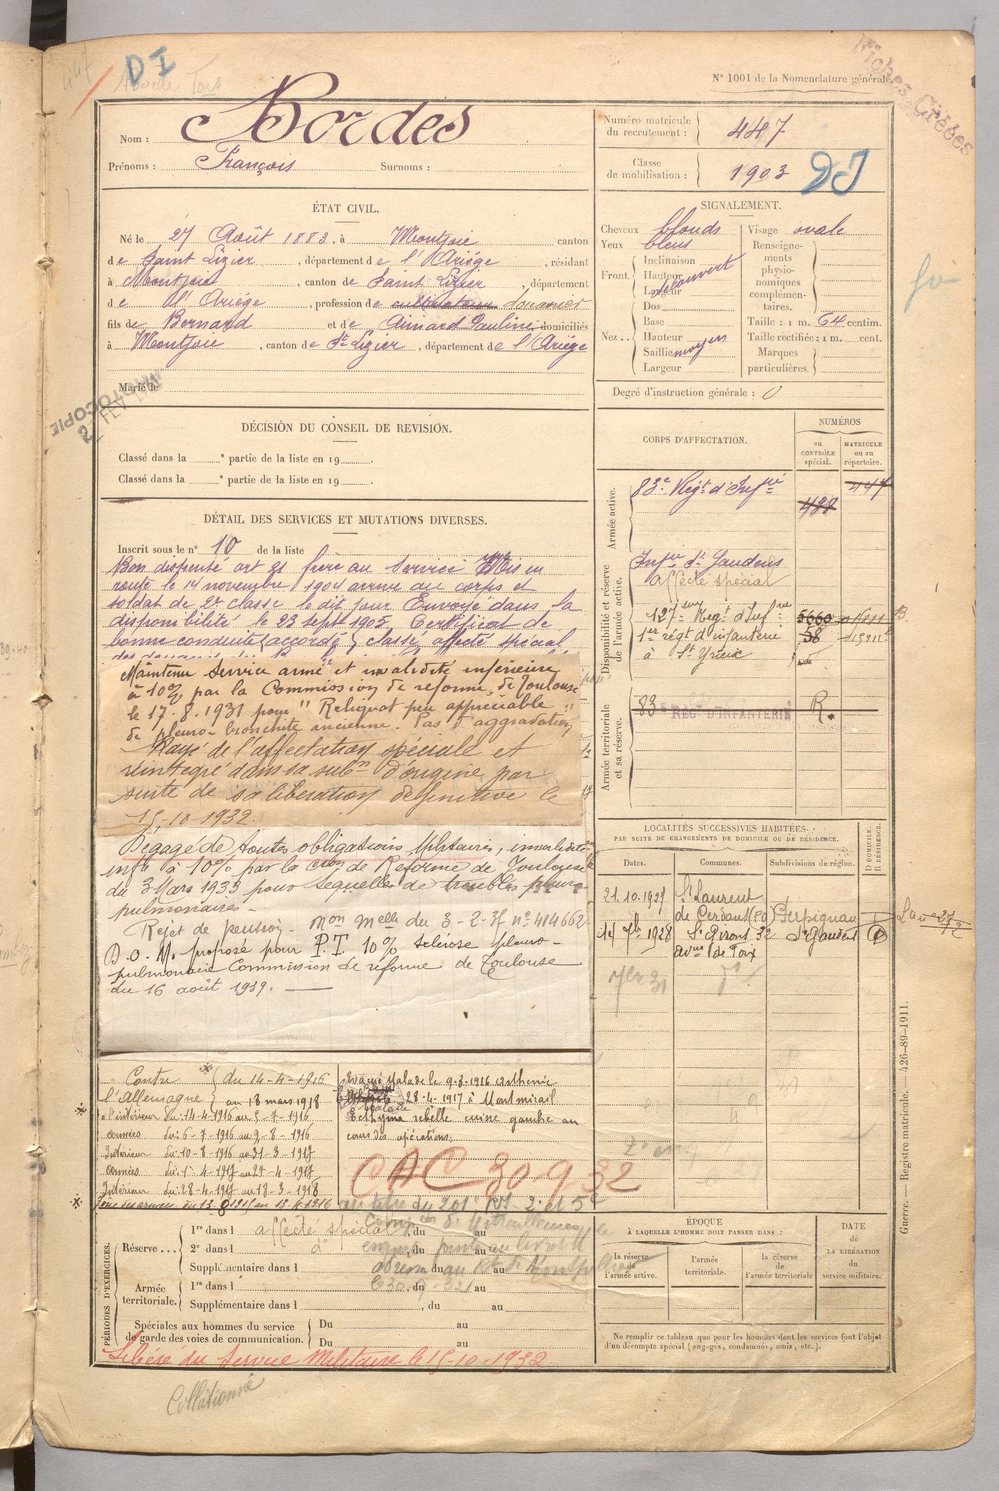 D I
N° 1001 de la Nomenclature générale.
Fiches Créées
Nom : Bordes
Prénoms : François Surnoms :
Numéro matricule du recrutement : 447
Classe de mobilisation : 1903
DI
ÉTAT CIVIL.
Né le 27 Août 1883, à Montjoie canton
de Saint Lizier, département de l'Ariège, résidant
à Montjoie, canton de Saint Lizier, département
de l'Ariège, profession de cultivateur douanier
fils de Bernard et de Aimard Pauline domiciliés
à Montjoie, canton de St Lizier, département de l'Ariège
Marié le
PHOTOCOPIE
SIGNALEMENT.
Cheveux blonds
Yeux bleus
Front. Inclinaison
Hauteur découvert
Largeur
Nez.. Dos
Base
Hauteur
Saillie moyen
Largeur
Visage ovale
Renseignements physionomiques complémentaires.
Taille : 1 m. 64 centim.
Taille rectifiée : 1 m. cent.
Marques particulières.
Degré d'instruction générale : 0
DÉCISION DU CONSEIL DE REVISION.
Classé dans la e partie de la liste en 19 .
Classé dans la e partie de la liste en 19 .
DÉTAIL DES SERVICES ET MUTATIONS DIVERSES.
Inscrit sous le n° 10 de la liste
Bon dispensé art 21 frère au service Mis en
route le 14 novembre 1904 arrivé au corps et
soldat de 2e classe le dit jour Envoyé dans la
disponibilité le 23 sept 1905 Certificat de
bonne conduite "accordé" classé affecté spécial
Maintenu service armé et invalidité inférieure
à 10% par la Commission de réforme de Toulouse
le 17-8-1931 pour "Reliquat peu appréciable
de pleuro-bronchite ancienne. Pas d'aggravation"
Rayé de l'affectation spéciale et
réintégré dans sa subon d'origine par
suite de sa libération définitive le
15-10-1932.
Dégagé de toutes obligations Militaires, invalidité
infre à 10% par la Cion de Réforme de Toulouse
du 3 Mars 1935 pour séquelles de troubles pleuro-
pulmonaires -
Rejet de pension - Mon Melle du 3-2-35 n° 414662
D.O.M. proposé pour P.T. 10% sclérose pleuro-
pulmonaire Commission de réforme de Toulouse
du 16 août 1939. —
Contre l'Allemagne du 14-4-1916
au 18 mars 1918
Intérieur du: 14-4-1916 au 5-7-1916
Armées du: 6-7-1916 au 9-8-1916
Intérieur du: 10-8-1916 au 31-3-1917
Armées du: 1-4-1917 au 27-4-1917
Intérieur du: 28-4-1917 au 18-3-1918
Evacué Malade le 9-8-1916 asthénie
28-4-1917 à Montmirail
Ecthyma rebelle cuisse gauche au
cours des opérations.
CAC 30-9-32
CORPS D'AFFECTATION.
NUMÉROS
AU CONTRÔLE spécial.
MATRICULE ou au répertoire.
Armée active.
83e Régt d'Infrie 447
Disponibilité et réserve de l'armée active.
Infie St Gaudens
affecté spécial
127eme Régt d'Infrie 5660
1er régt d'infanterie 38
à St Yrieix
Armée territoriale et sa réserve.
83e RÉGt D'INFANTERIE R.
LOCALITÉS SUCCESSIVES HABITÉES
PAR SUITE DE CHANGEMENTS DE DOMICILE OU DE RÉSIDENCE.
Dates. Communes. Subdivisions de région. D DOMICILE. R RÉSIDENCE.
St Laurent
de Cerdans (P.O) Perpignan
St Girons 32 St Gaudens D
avnue de Foix
PÉRIODES D'EXERCICES.
Réserve... 1re dans l affecté spécial, du au
2e dans l du au
Supplémentaire dans l du au
Armée territoriale. 1re dans l , du au
Supplémentaire dans l , du au
Spéciales aux hommes du service de garde des voies de communication. Du au
Du au
Libéré du Service Militaire le 15-10-1932
Collationné
ÉPOQUE
À LAQUELLE L'HOMME DOIT PASSER DANS :
la réserve de l'armée active.
l'armée territoriale.
la réserve de l'armée territoriale
DATE DE LA LIBÉRATION DU service militaire.
Ne remplir ce tableau que pour les hommes dont les services font l'objet
d'un décompte spécial (engagés, condamnés, omis, etc.).
Guerre. — Registre matricule. — 426-89-1911.